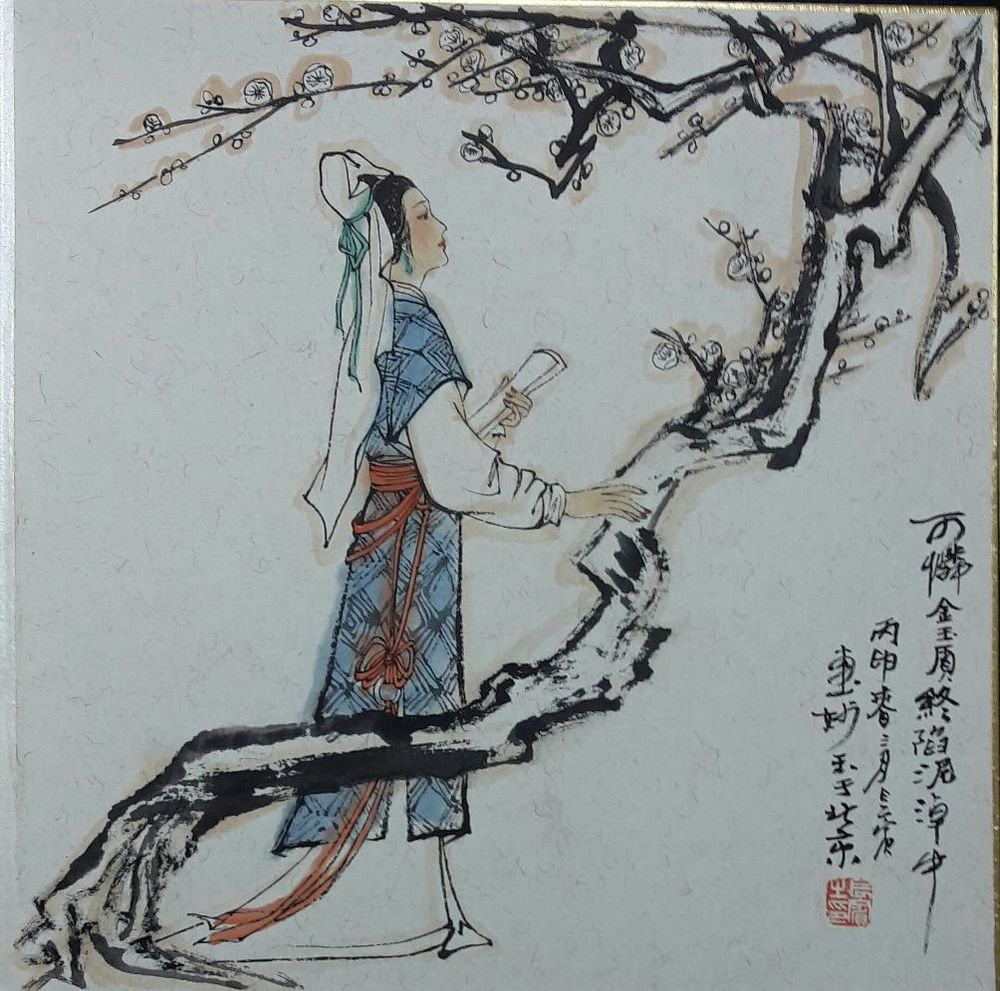 可憐金玉质終陷泥淖中
丙申春三月
畫妙玉于北京